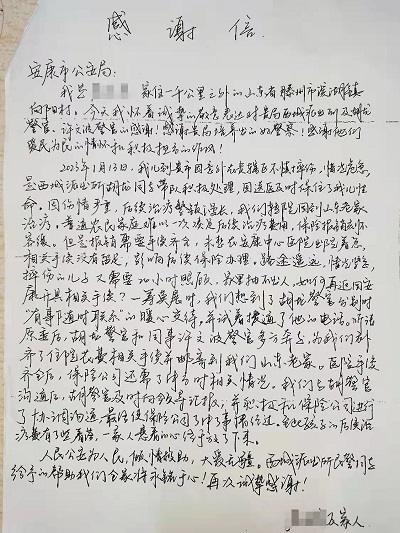 感谢信
安康市公安局:
我是 家住一千公里之外的山东省滕州市滨湖镇
向阳村。今天我怀着诚挚的敬意表达对贵局西城派出所及胡龙
警官、许文波警官的感谢!感谢贵局培养出的好警察!感谢他们
爱民为民的情怀和积极担当的作风!
2023年1月13日,我儿到贵市因意外在贵辖区不慎摔伤,情况危急,
是西城派出所胡龙同志带队积极处理,因送医及时保住了我儿生
命。因伤情严重,后续治疗繁琐漫长,我们转院回到山东老家
治疗,普通农民家庭难以一次承足后续治疗费用,保险报销刻不
容缓。但是报销需要手续齐全,未想在安康中心医院出院着急,
相关手续没有备足,影响后续保险办理。路途遥远,情况紧急,
摔伤的儿子又需要24小时照顾,家里抽不出人,如何再返回安
康开具相关手续?一筹莫展时,我们想到了胡龙警官分别时
“有事随时联系”的暖心交待,并试着拨通了他的电话。听说
原委后,胡龙警官和同事许文波警官多方奔走,为我们补
齐了住院花费相关手续并邮寄到我们山东老家。医院手续
齐全后,保险公司还需了解当时相关情况。我们与胡龙警官
沟通后,胡龙警官及时向领导汇报,并积极和保险公司进行
了协调沟通,最终使保险公司了解了事情经过,令我孩子的后续治
疗费有了些着落,一家人悬着的心终于放了下来。
人民公安为人民,倾情救助,大爱无疆。西城派出所民警同志
给予的帮助我们全家将永铭于心!再次诚挚感谢!
及家人